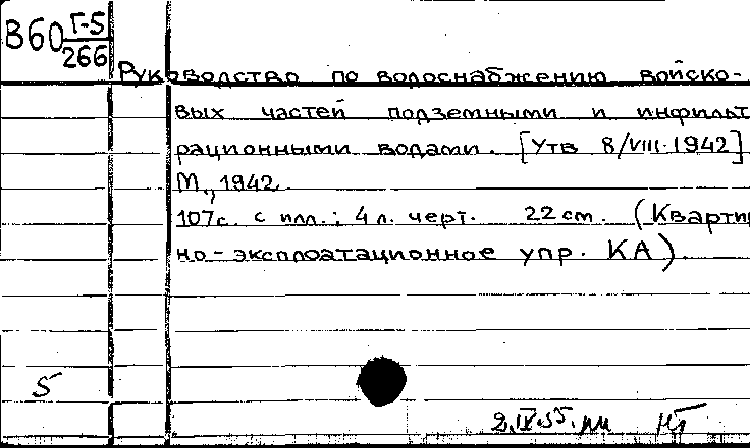 В60 Г-5
266
Руководство по водоснабжению войско-
вых частей подземными и инфильт
рационными водами. [Утв 8/VIII-1942]
М., 1942.
107с. с илл.; 4 л. черт. 22 см. (Кварти
но-эксплоатационное упр. КА).
5
2.IV.55.